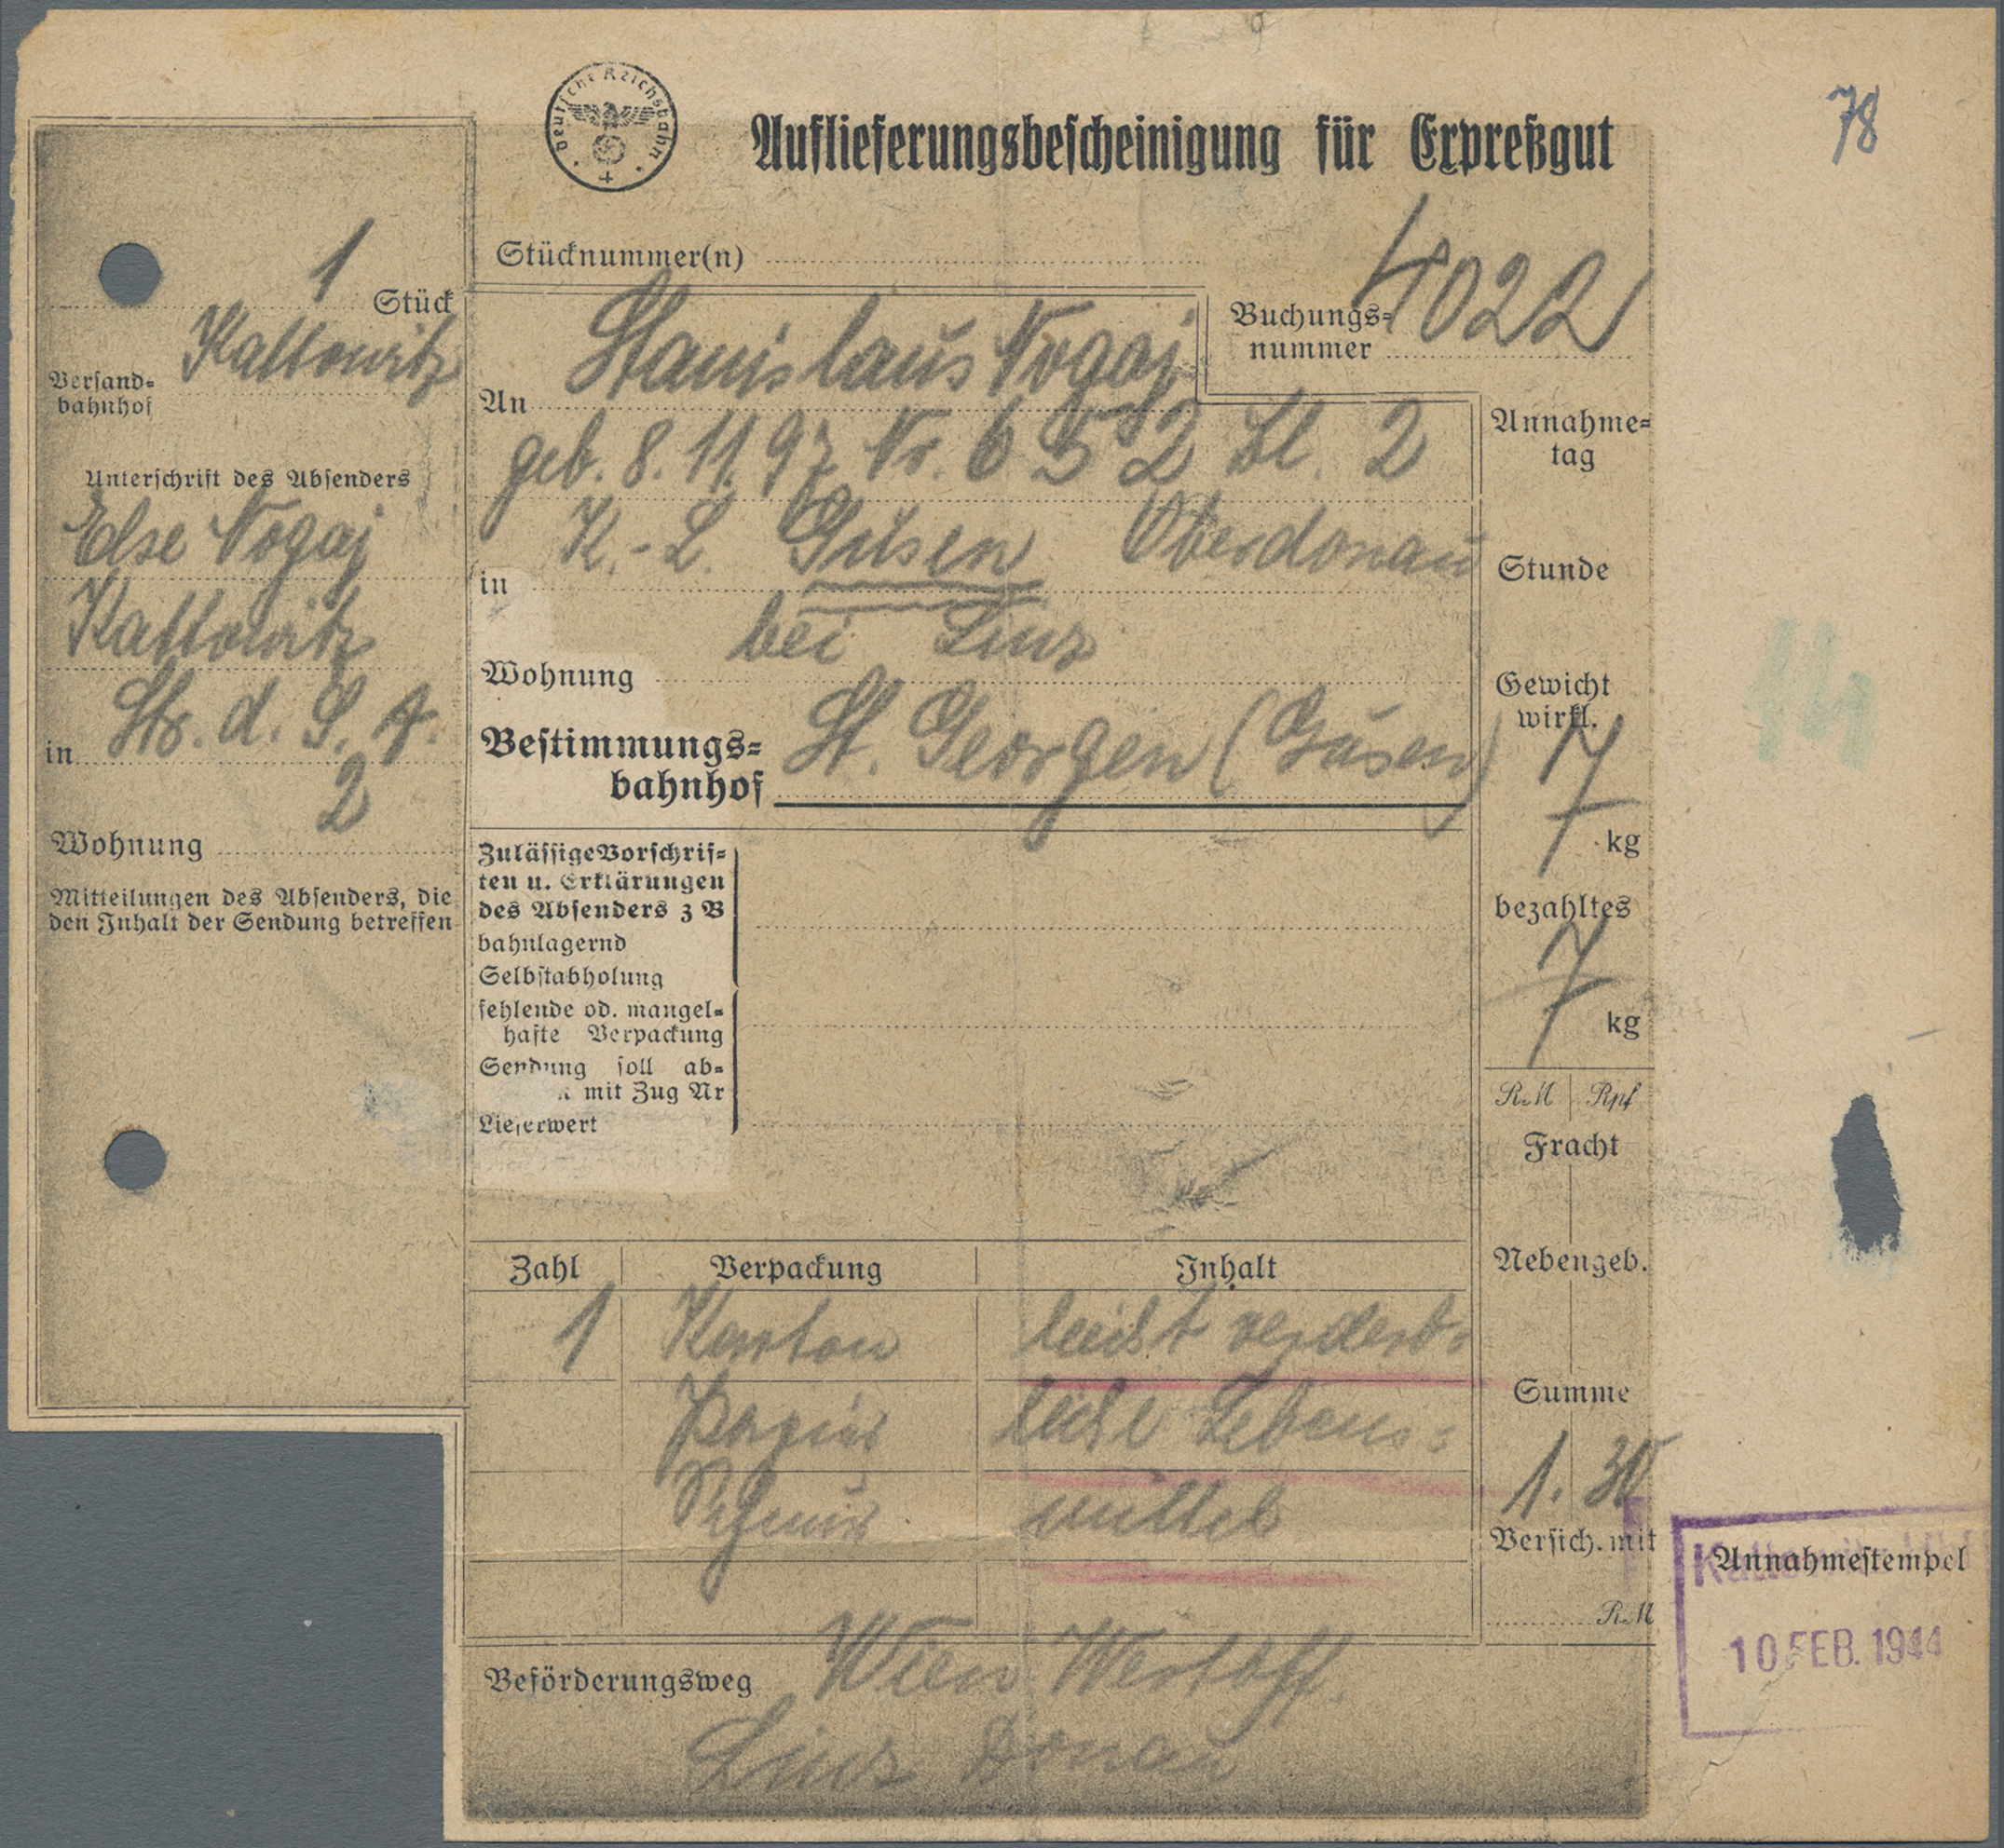 78
Deutsche Reichsbahn
Auflieferungsbescheinigung für Expreßgut
Stücknummer(n)
Buchungs=
nummer 4022
1 Stück
Versand=
bahnhof Kattowitz
Unterschrift des Absenders
Else Nogaj
Kattowitz
in Str. d. S. A.
2
Wohnung
Mitteilungen des Absenders, die
den Inhalt der Sendung betreffen
An Stanislaus Nogaj
geb. 8.11.97 Nr. 652 Bl. 2
in K.-L. Gusen Oberdonau
bei Linz
Wohnung
Bestimmungs=
bahnhof St. Georgen (Gusen)
Zulässige Vorschrif=
ten u. Erklärungen
des Absenders z B
bahnlagernd
Selbstabholung
fehlende od. mangel=
hafte Verpackung
Sendung soll ab=
mit Zug Nr
Lieferwert
Annahme=
tag
Stunde
Gewicht
wirkl.
7
kg
bezahltes
7
kg
RM Rpf
Fracht
Nebengeb.
Summe
1.30
Versich. mit
RM
Zahl Verpackung Inhalt
1 Karton leicht verderb=
Papier liche Lebens=
Schnur mittel
Beförderungsweg Wien Westbf
Linz Donau
Annahmestempel
Kattowitz
10 FEB. 1944